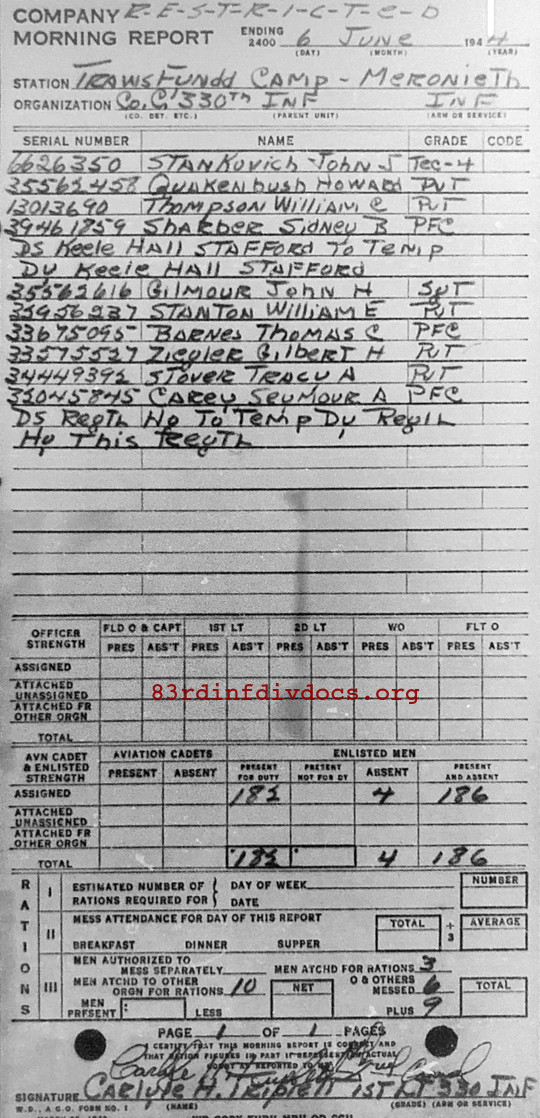 COMPANY R-E-S-T-R-I-C-T-E-D
MORNING REPORT ENDING 2400 6 June 1944
(DAY) (MONTH) (YEAR)
STATION TRAWSFUNDD CAMP - MERONIETH
ORGANIZATION Co. "G" 330TH INF INF
(CO. DET. ETC.) (PARENT UNIT) (ARM OR SERVICE)
SERIAL NUMBER NAME GRADE CODE
6626350 STANKOVICH JOHN J TEC-4
35562458 QUAKENBUSH HOWARD PVT
13013690 THOMPSON WILLIAM C PVT
39461859 SHARBER SIDNEY B PFC
DS KEELE HALL STAFFORD TO TEMP
DY KEELE HALL STAFFORD
35562616 GILMOUR JOHN H SGT
35956237 STANTON WILLIAM E PVT
33675095 BARNES THOMAS C PFC
33575527 ZIEGLER GILBERT H PVT
34449392 STOVER TRACY A PVT
32045845 CAREY SEYMOUR A PFC
DS REGTL HQ TO TEMP DY REGTL
HQ THIS REGTL
OFFICER STRENGTH FLD O & CAPT 1ST LT 2D LT WO FLT O
PRES ABS'T PRES ABS'T PRES ABS'T PRES ABS'T PRES ABS'T
ASSIGNED
ATTACHED UNASSIGNED
83rdinfdivdocs.org
ATTACHED FR OTHER ORGN
TOTAL
AVN CADET & ENLISTED STRENGTH AVIATION CADETS ENLISTED MEN
PRESENT ABSENT PRESENT FOR DUTY PRESENT NOT FOR DY ABSENT PRESENT AND ABSENT
ASSIGNED 182 4 186
ATTACHED UNASSIGNED
ATTACHED FR OTHER ORGN
TOTAL 182 4 186
RATIONS
I ESTIMATED NUMBER OF RATIONS REQUIRED FOR { DAY OF WEEK DATE NUMBER
II MESS ATTENDANCE FOR DAY OF THIS REPORT TOTAL ÷ 3 AVERAGE
BREAKFAST DINNER SUPPER
III MEN AUTHORIZED TO MESS SEPARATELY MEN ATCHD FOR RATIONS 3
MEN ATCHD TO OTHER ORGN FOR RATIONS 10 NET O & OTHERS MESSED 6 TOTAL
MEN PRESENT LESS PLUS 9
PAGE 1 OF 1 PAGES
I CERTIFY THAT THIS MORNING REPORT IS CORRECT AND
THAT RATION FIGURES IN PART II REPRESENT ACTUAL
COUNT AS REPORTED TO ME
SIGNATURE CARLYLE H. TRIPLETT 1ST LT 330 INF
W.D., A.G.O. FORM NO. 1 (NAME) (GRADE) (ARM OR SERVICE)